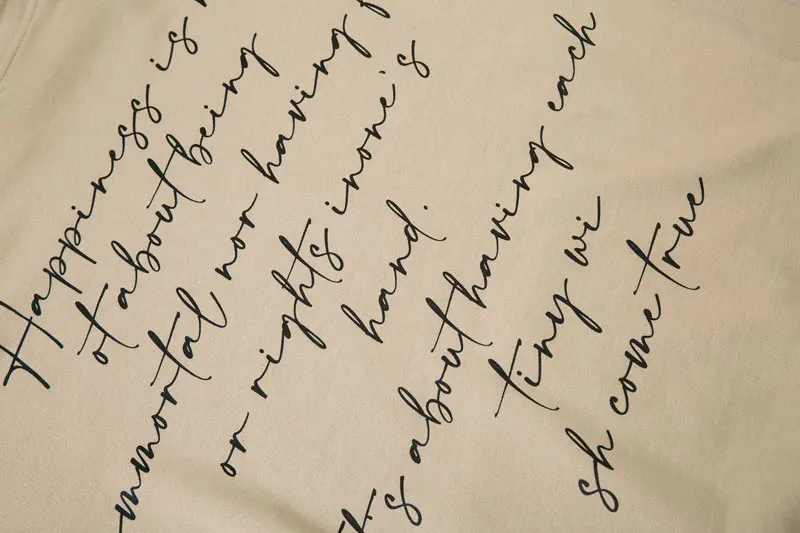 Happiness is
ot about being
mmortal nor having
or rights inone's
hand.
ts about having each
tiny wi
sh come true